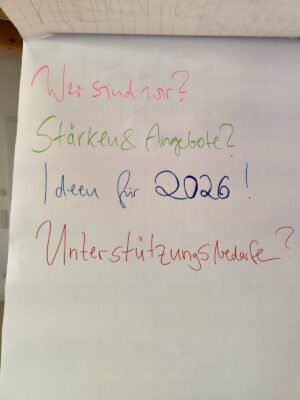 Wer sind wir?
Stärken & Angebote?
Ideen für 2026!
Unterstützungsbedarfe?